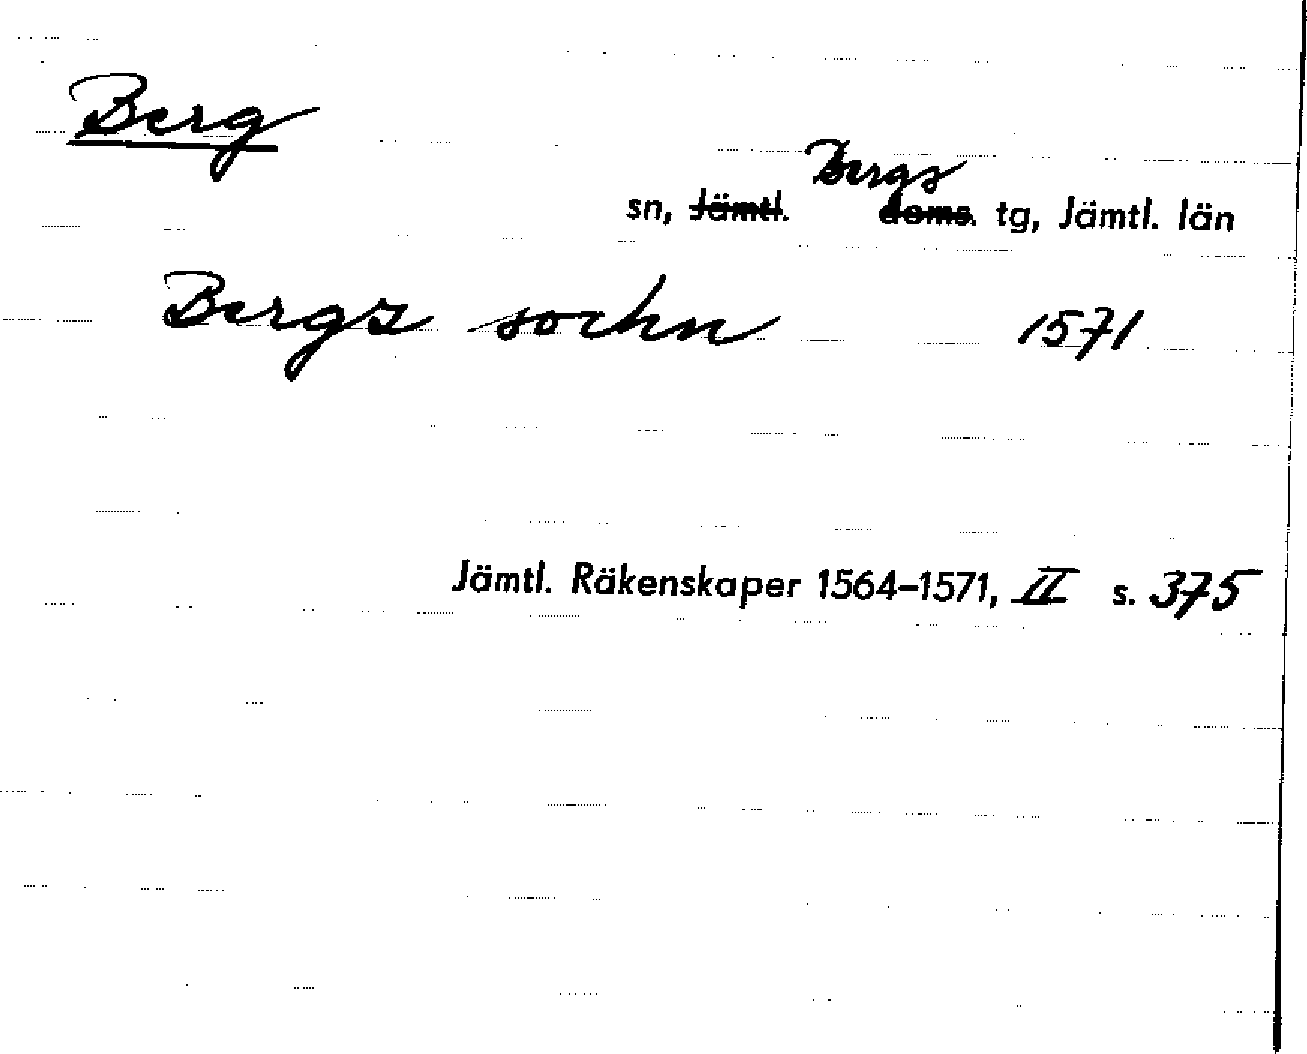 Berg
Bergs
sn, Jämtl. doms. tg, Jämtl. län
Bergz sochn 1571
Jämtl. Räkenskaper 1564–1571, II s. 375